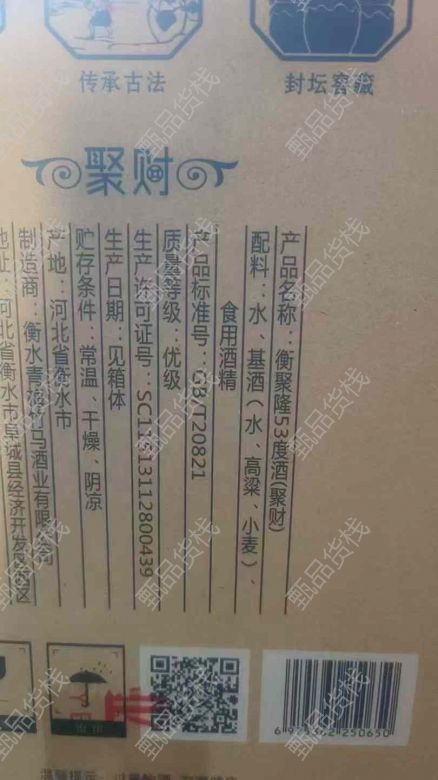 传承古法
封坛窖藏
聚财
产品名称：衡聚隆53度酒(聚财)
配料：水、基酒(水、高粱、小麦)、
食用酒精
产品标准号：GB/T20821
质量等级：优级
生产许可证号：SC11513112800439
生产日期：见箱体
贮存条件：常温、干燥、阴凉
产地：河北省衡水市
制造商：衡水青花竹马酒业有限公司
地址：河北省衡水市阜城县经济开发区
甄品货栈